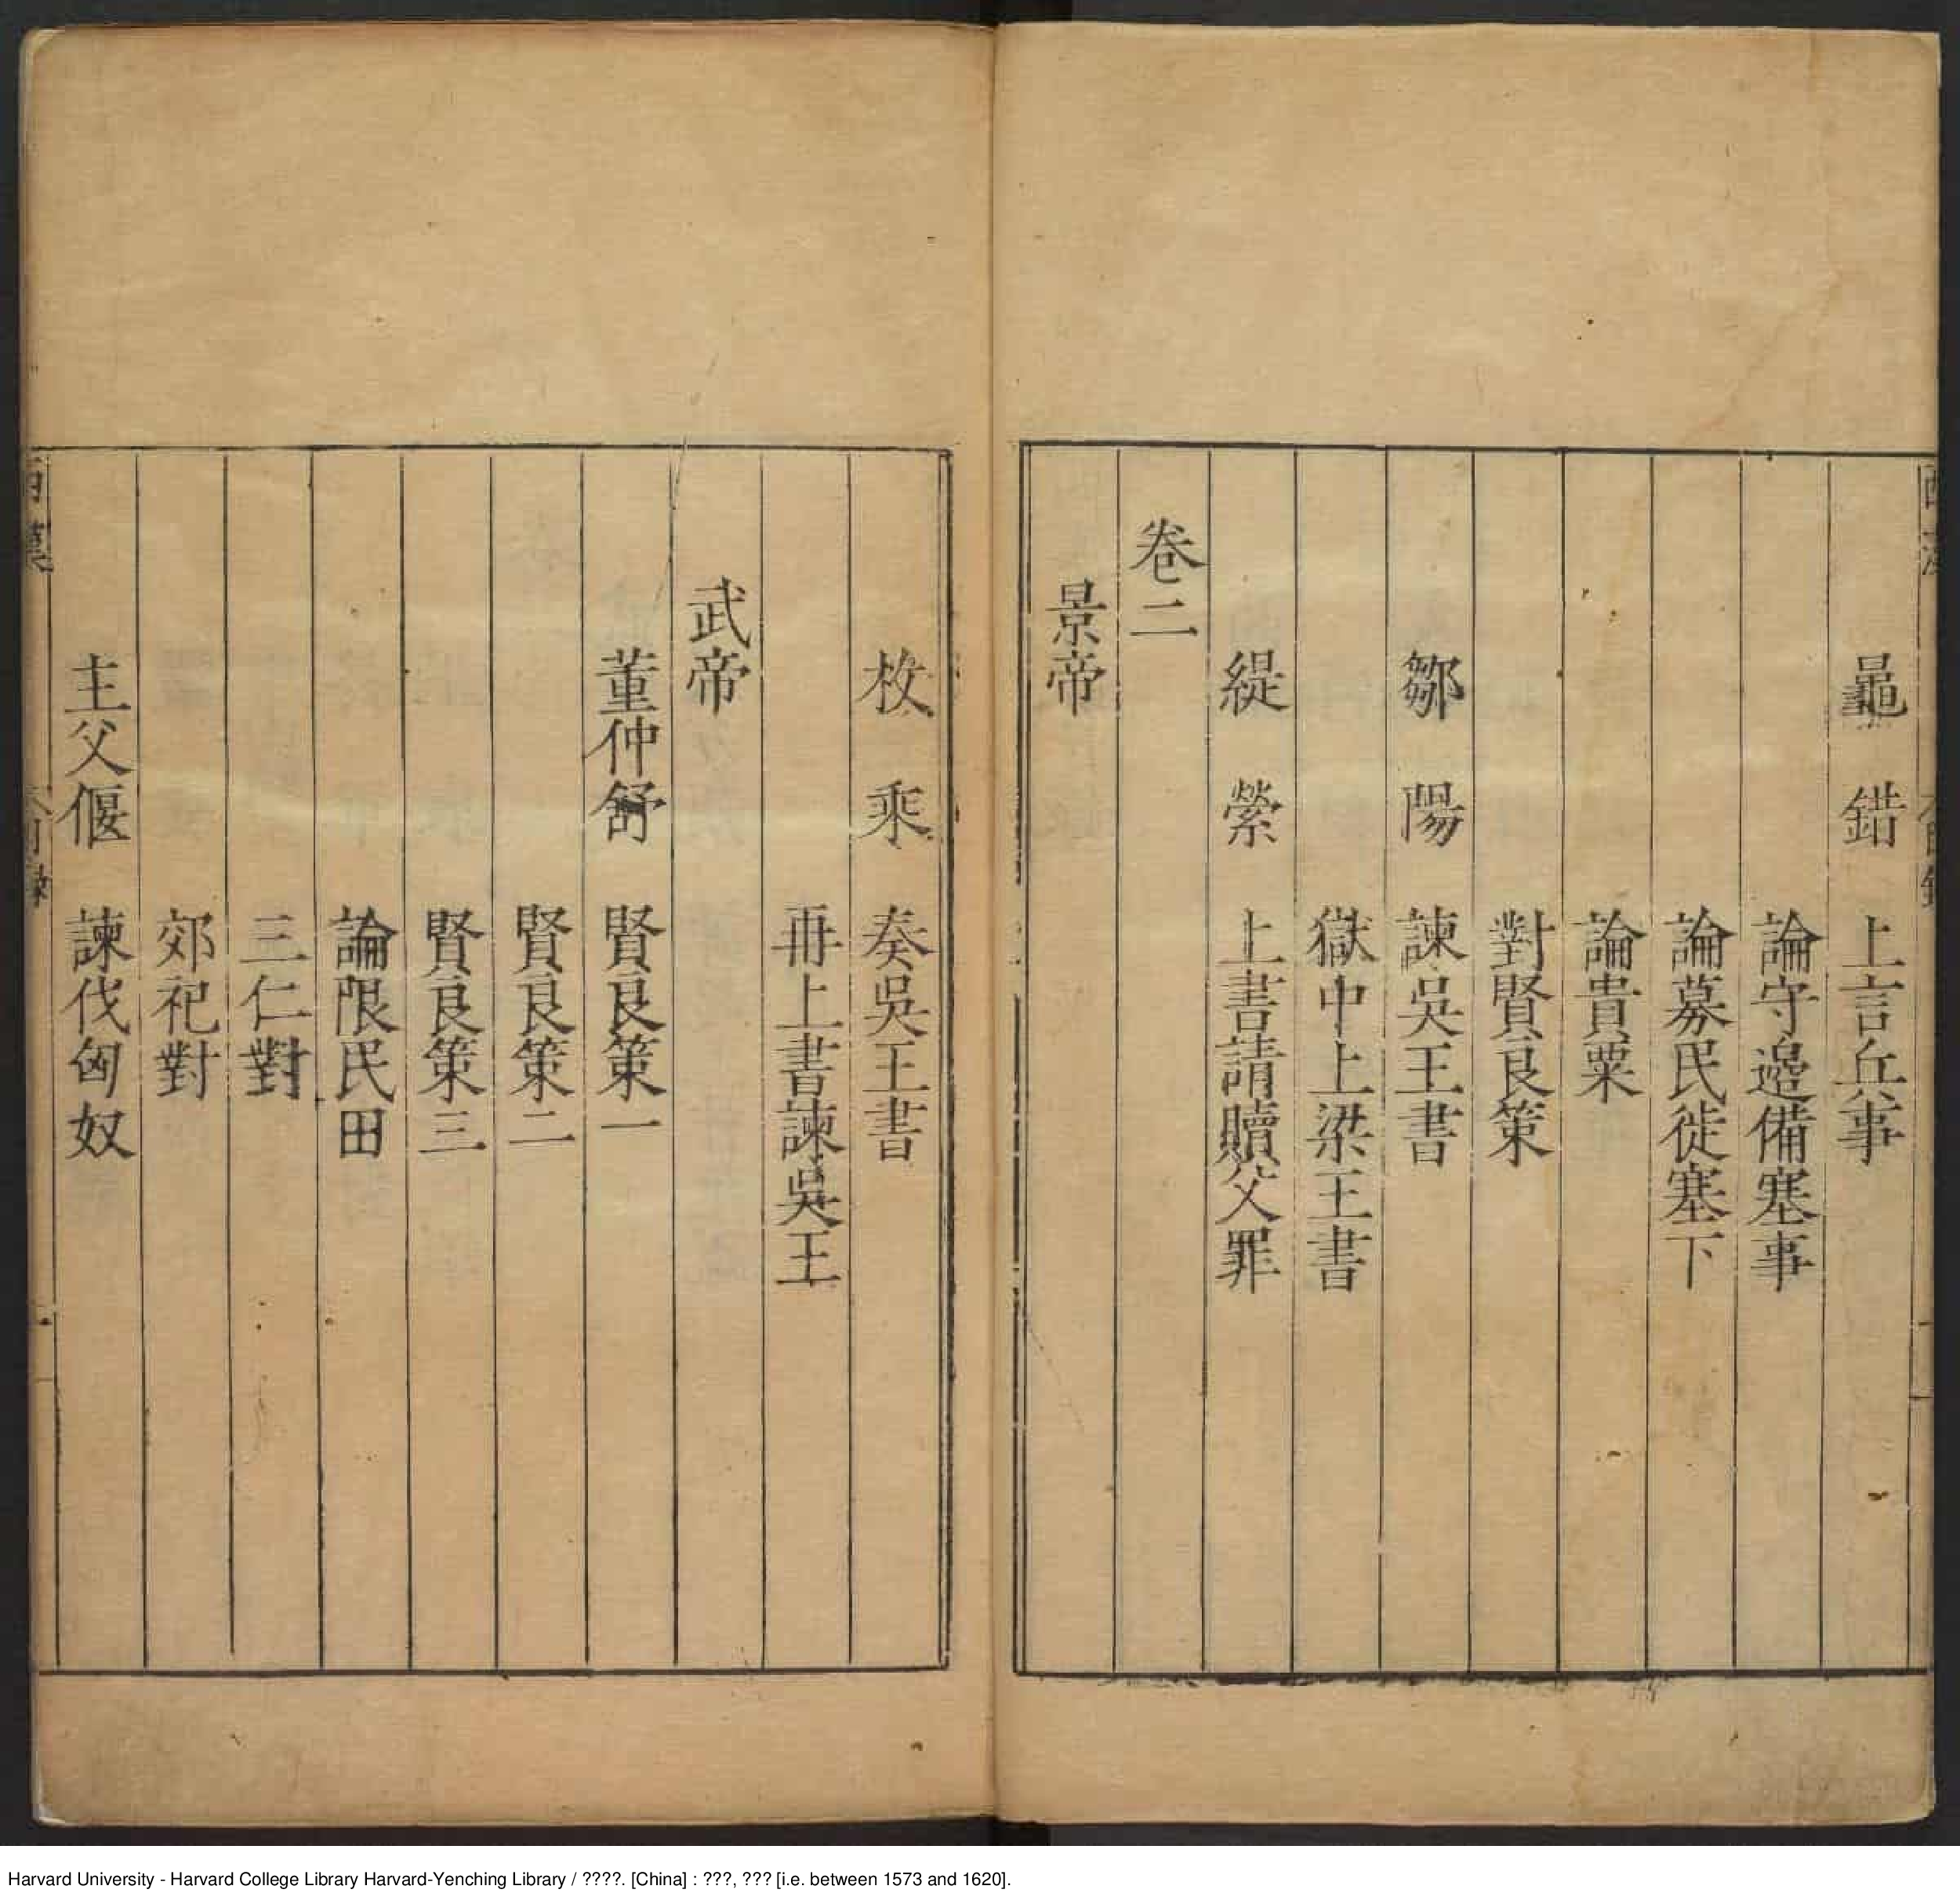 鼂錯 上言兵事
論守邉備塞事
論募民徙塞下
論貴粟
對賢良策
鄒陽 諫吳王書
獄中上梁王書
緹縈 上書請贖父罪
卷二
景帝
枚乘 奏吳王書
再上書諫吳王
武帝
董仲舒 賢良策一
賢良策二
賢良策三
論限民田
三仁對
郊祀對
主父偃 諫伐匈奴
Harvard University - Harvard College Library Harvard-Yenching Library / ????. [China] : ???, ??? [i.e. between 1573 and 1620].